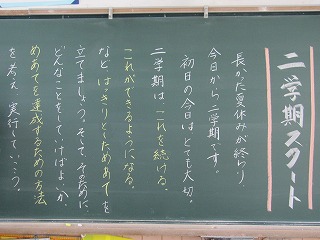 二学期スタート
長かった夏休みが終わり、
今日から二学期です。
初日の今日はとても大切。
二学期は、これを続ける。
これができるようになる。
など、はっきりとしためあてを
立てましょう。そして、そのために、
どんなことをしていけばよいか
めあてを達成するための方法
を考え、実行していこう。